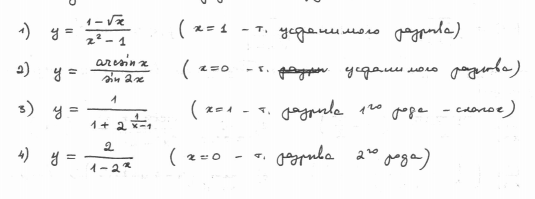 1) y = (1-√x)/(x² - 1) (x=1 - т. устранимого разрыва)
2) y = arcsin x/sin 2x (x=0 - т. устранимого разрыва)
3) y = 1/(1 + 2^(1/(x-1))) (x=1 - т. разрыва 1го рода - скачок)
4) y = 2/(1-2^x) (x=0 - т. разрыва 2го рода)